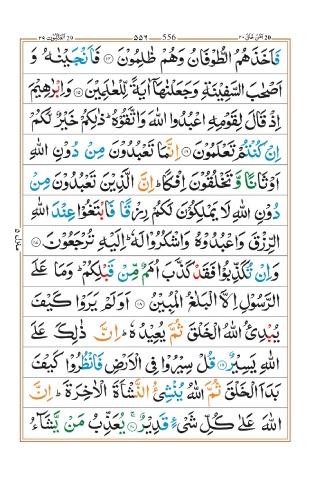 امن خلق ٢٠ 556 ٥٥٦ العنكبوت ٢٩
فَاَخَذَهُمُ الطُّوْفَانُ وَهُمْ ظٰلِمُوْنَ ﴿١٤﴾ فَاَنْجَيْنٰهُ وَ
اَصْحٰبَ السَّفِيْنَةِ وَجَعَلْنٰهَاۤ اٰيَةً لِّلْعٰلَمِيْنَ ﴿١٥﴾ وَاِبْرٰهِيْمَ
اِذْ قَالَ لِقَوْمِهِ اعْبُدُوا اللّٰهَ وَاتَّقُوْهُ ؕ ذٰلِكُمْ خَيْرٌ لَّكُمْ
اِنْ كُنْتُمْ تَعْلَمُوْنَ ﴿١٦﴾ اِنَّمَا تَعْبُدُوْنَ مِنْ دُوْنِ اللّٰهِ
اَوْثَانًا وَّ تَخْلُقُوْنَ اِفْكًا ؕ اِنَّ الَّذِيْنَ تَعْبُدُوْنَ مِنْ
دُوْنِ اللّٰهِ لَا يَمْلِكُوْنَ لَكُمْ رِزْقًا فَابْتَغُوْا عِنْدَ اللّٰهِ
الرِّزْقَ وَاعْبُدُوْهُ وَاشْكُرُوْا لَهٗ ؕ اِلَيْهِ تُرْجَعُوْنَ ﴿١٧﴾
وَاِنْ تُكَذِّبُوْا فَقَدْ كَذَّبَ اُمَمٌ مِّنْ قَبْلِكُمْ ؕ وَمَا عَلَى
الرَّسُوْلِ اِلَّا الْبَلٰغُ الْمُبِيْنُ ﴿١٨﴾ اَوَلَمْ يَرَوْا كَيْفَ
يُبْدِئُ اللّٰهُ الْخَلْقَ ثُمَّ يُعِيْدُهٗ ؕ اِنَّ ذٰلِكَ عَلَى
اللّٰهِ يَسِيْرٌ ﴿١٩﴾ قُلْ سِيْرُوْا فِى الْاَرْضِ فَانْظُرُوْا كَيْفَ
بَدَاَ الْخَلْقَ ثُمَّ اللّٰهُ يُنْشِئُ النَّشْاَةَ الْاٰخِرَةَ ؕ اِنَّ
اللّٰهَ عَلٰى كُلِّ شَىْءٍ قَدِيْرٌ ﴿٢٠﴾ يُعَذِّبُ مَنْ يَّشَآءُ